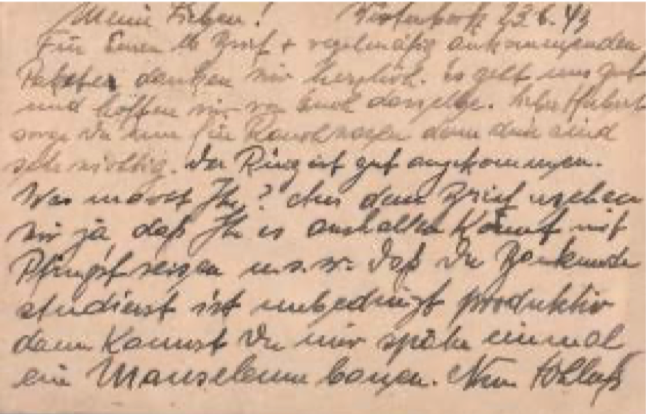 Meine Lieben! Westerbork 23.6.43
Für Euren lb Brief + regelmäßig ankommenden
Pakete danken wir herzlich. Es geht uns gut
und hoffen wir von Euch dasselbe. Lieber Hubert
sorge Du nun für denn die sind
sehr wichtig. Der Ring ist gut angekommen.
Was macht Ihr? Aus dem Brief ersehen
wir ja daß Ihr es aushalten könnt mit
u.s.w. Daß Du
studierst ist unbedingt produktiv
dann kannst Du mir später einmal
ein bauen. Nun